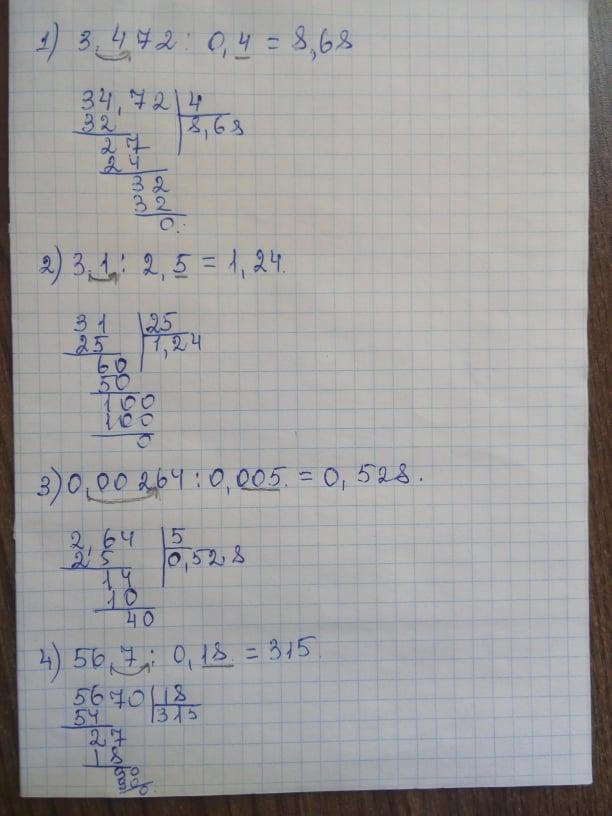 1) 3,472 : 0,4 = 8,68
34,72 | 4
32 | 8,68
27
24
32
32
0.
2) 3,1 : 2,5 = 1,24.
31 | 25
25 | 1,24
60
50
100
100
0
3) 0,00264 : 0,005 = 0,528.
2,64 | 5
2 5 | 0,528
14
10
40
4) 56,7 : 0,18 = 315.
5670 | 18
54 | 315
27
18
90
90
0.